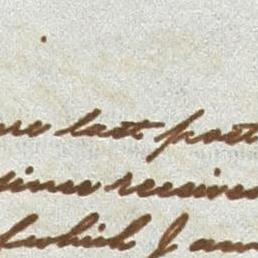 last post
since received
which I am